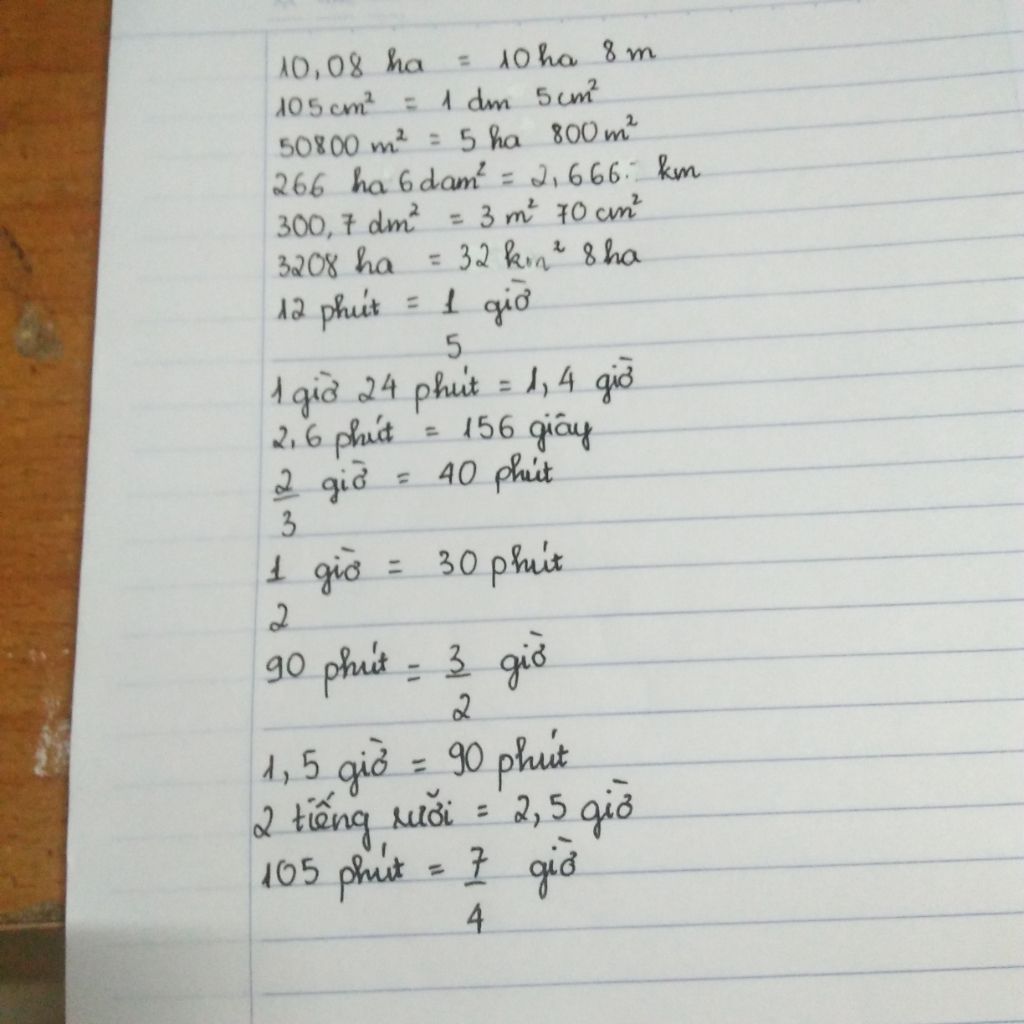 10,08 ha = 10 ha 8 m
105 cm² = 1 dm 5 cm²
50800 m² = 5 ha 800 m²
266 ha 6 dam² = 2,666 km
300,7 dm² = 3 m² 70 cm²
3208 ha = 32 km² 8 ha
12 phút = 1 giờ
5
1 giờ 24 phút = 1,4 giờ
2,6 phút = 156 giây
2 giờ = 40 phút
3
1 giờ = 30 phút
2
90 phút = 3 giờ
2
1,5 giờ = 90 phút
2 tiếng rưỡi = 2,5 giờ
105 phút = 7 giờ
4